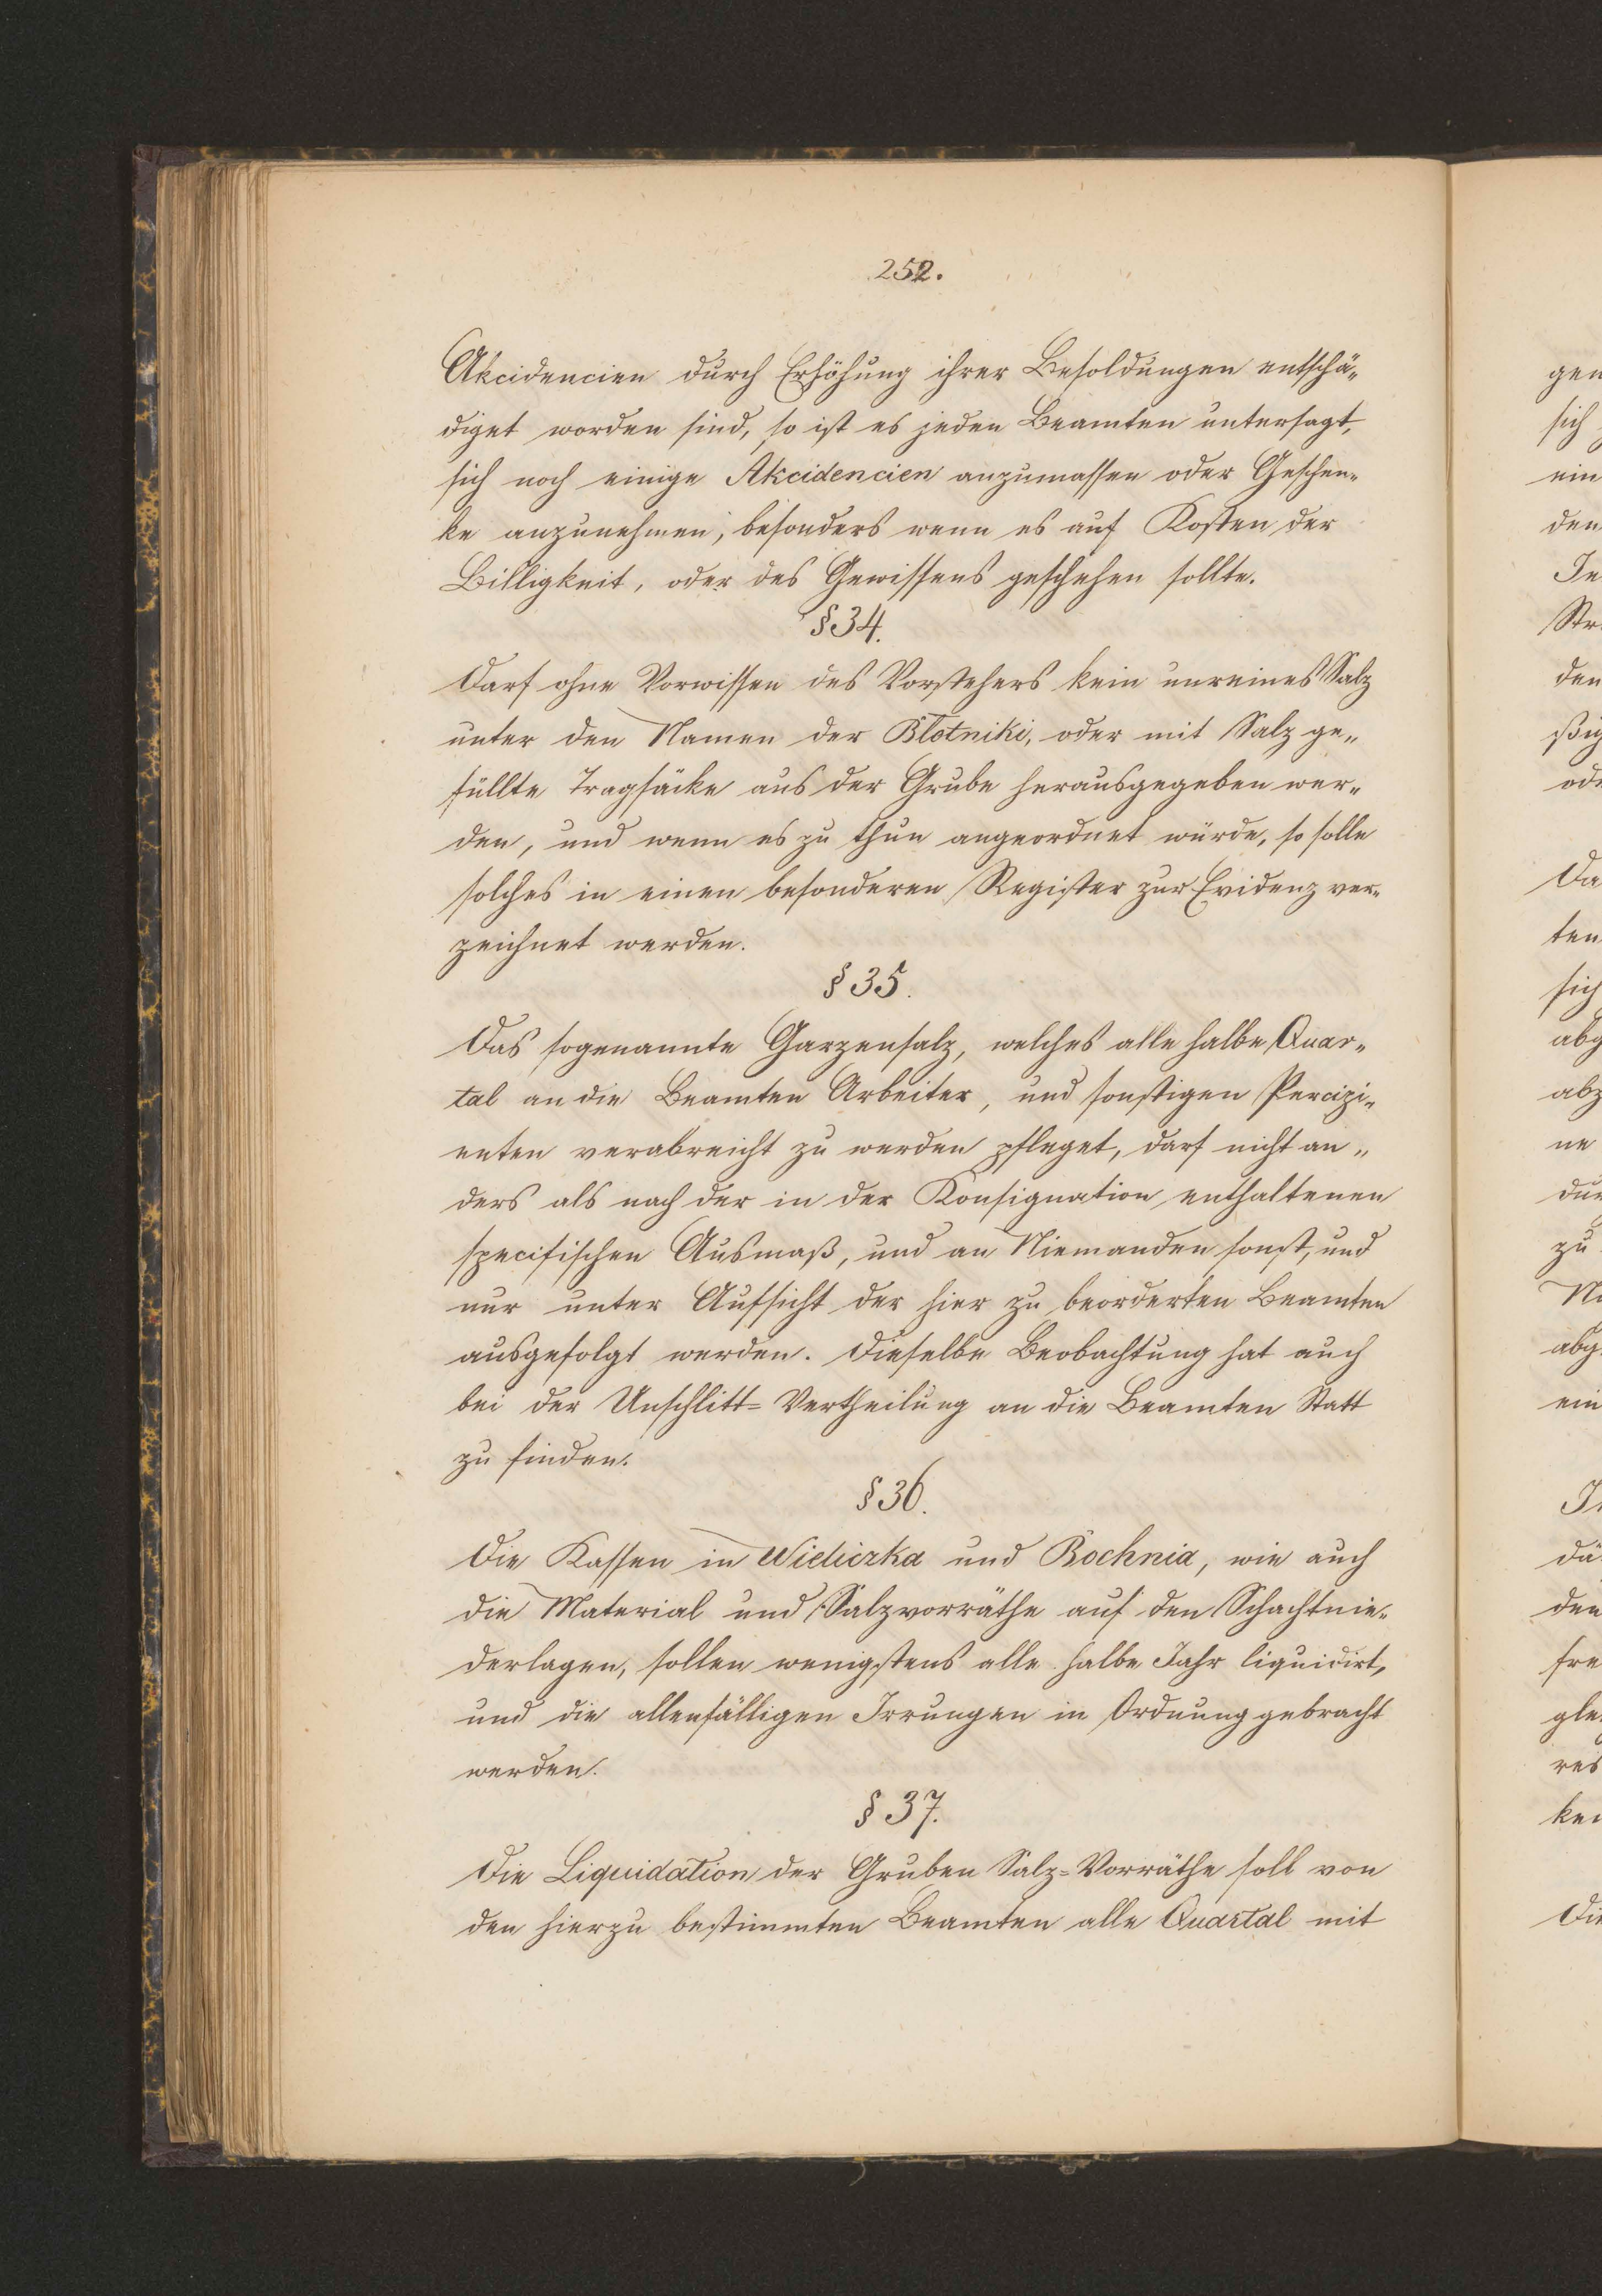 252.
Akcidencien durch Erhöhung ihrer Besoldungen entschä„
diget worden sind, so ist es jeden Beamten untersagt,
sich noch einige Akcidencien anzumassen oder Geschen„
ke anzunehmen, besonders wenn es auf Kosten der
Billigkeit, oder des Gewissens geschehen sollte.
§ 34.
Darf ohne Vorwissen des Vorstehers kein unreines Salz
unter den Namen der Blotniki, oder mit Salz ge„
füllte Tragsäcke aus der Grube herausgegeben wer„
den, und wenn es zu thun angeordnet würde, so solle
solches in einen besonderen Register zur Evidenz ver„
zeichnet werden.
§ 35.
Das sogenannte Garzensalz, welches alle halbe Quar„
tal an die Beamten Arbeiter, und sonstigen Percizi„
enten verabreicht zu werden pfleget, darf nicht an„
ders als nach der in der Konsignation enthaltenen
specifischen Ausmaß, und an Niemanden sonst, und
nur unter Aufsicht der hier zu beorderten Beamten
ausgefolgt werden. Dieselbe Beobachtung hat auch
bei der Unschlitt= Vertheilung an die Beamten Statt
zu finden.
§ 36.
Die Kassen in Wieliczka und Bochnia, wie auch
die Material und Salzvorräthe auf den Schachtnie„
derlagen, sollen wenigstens alle halbe Jahr liquidirt,
und die allenfälligen Irrungen in Ordnung gebracht
werden.
§ 37.
Die Liquidation der Gruben Salz=Vorräthe soll von
den hierzu bestimmten Beamten alle Quartal mit